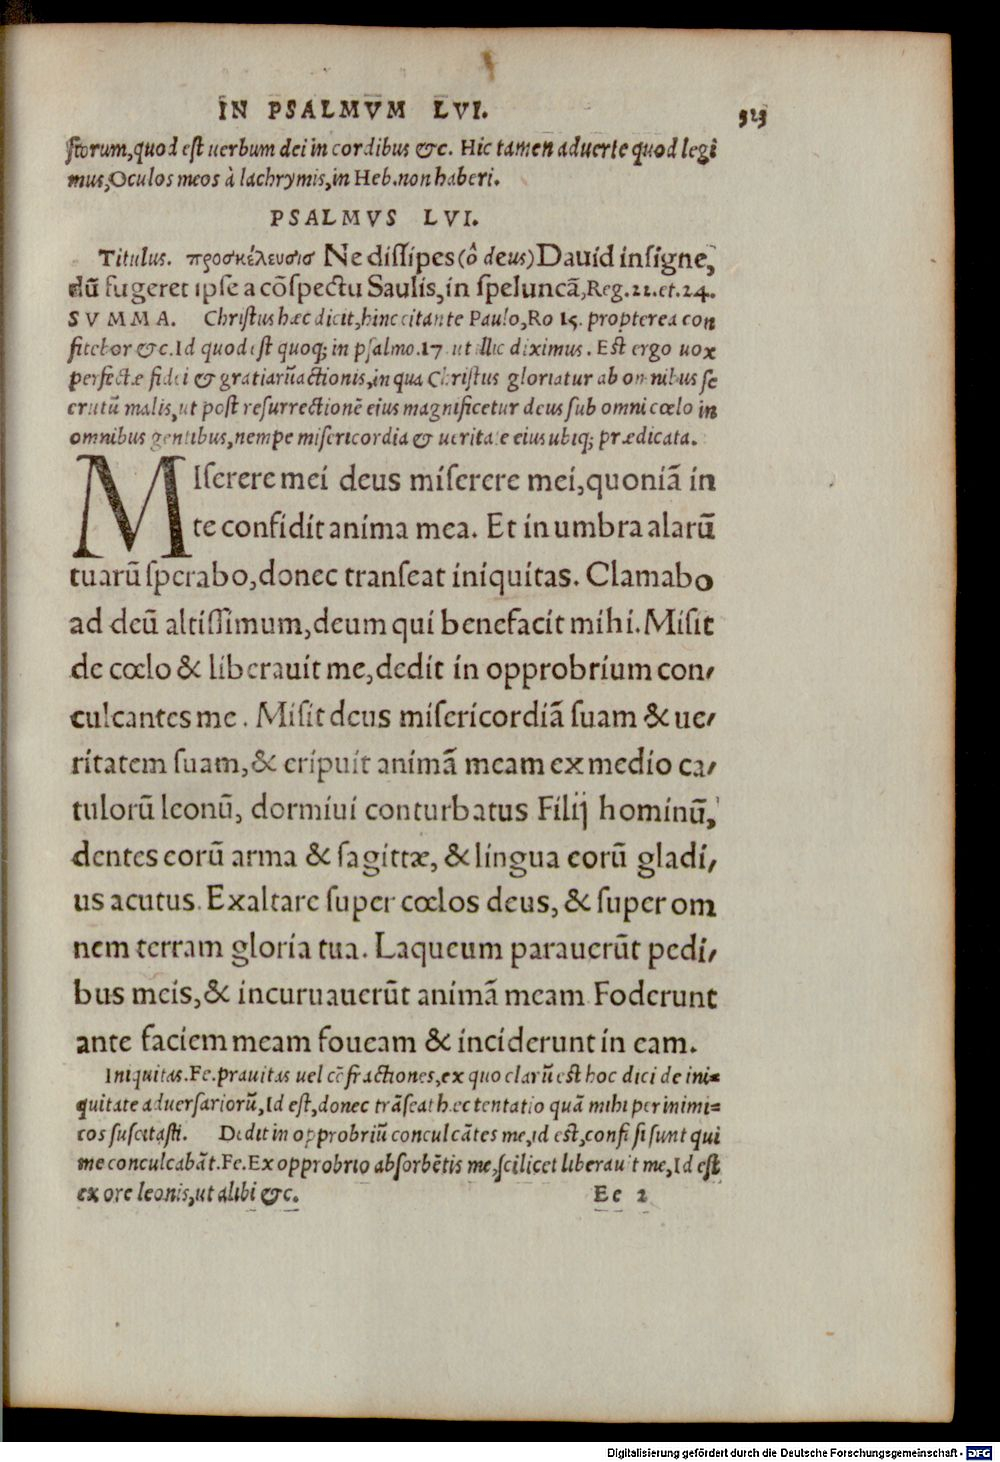 IN PSALMVM LVI. 323
ſtorum,quod eſt uerbum dei in cordibus &c. Hic tamen aduerte quod legi
mus,Oculos meos à lachrymis,in Heb.non haberi.
PSALMVS LVI.
Titulus. προσκέλευσισ Ne diſſipes (ô deus) Dauid inſigne,
dū fugeret ipſe a cōſpectu Saulis,in ſpeluncā,Reg.22.et.24.
SVMMA. Chriſtus hæc dicit,hinc citante Paulo,Ro 15. propterea con
fitebor &c.Id quod eſt quoq; in pſalmo.17 ut illic diximus. Eſt ergo uox
perfectæ fidei & gratiarūactionis,in qua Chriſtus gloriatur ab omnibus ſe
erutū malis,ut poſt reſurrectionē eius magnificetur deus ſub omni cœlo in
omnibus gentibus,nempe miſericordia & ueritate eius ubiq; prædicata.
MIſerere mei deus miſerere mei,quoniā in
te confidit anima mea. Et in umbra alarū
tuarū ſperabo,donec tranſeat iniquitas. Clamabo
ad deū altiſſimum,deum qui benefacit mihi. Miſit
de cœlo & liberauit me,dedit in opprobrium con-
culcantes me. Miſit deus miſericordiā ſuam & ue-
ritatem ſuam,& eripuit animā meam ex medio ca-
tulorū leonū, dormiui conturbatus Filij hominū,
dentes eorū arma & ſagittæ, & lingua eorū gladi-
us acutus. Exaltare ſuper cœlos deus, & ſuper om
nem terram gloria tua. Laqueum parauerūt pedi-
bus meis,& incuruauerūt animā meam Foderunt
ante faciem meam foueam & inciderunt in eam.
Iniquitas.Fe.prauitas uel cōfractiones,ex quo clarū eſt hoc dici de ini=
quitate aduerſariorū,Id eſt,donec trāſeat hæc tentatio quā mihi per inimi=
cos ſuſcitaſti. Dedit in opprobriū conculcātes me,id eſt,confiſi ſunt qui
me conculcabāt.Fe.Ex opprobrio abſorbētis me,ſcilicet liberauit me,Id eſt
ex ore leonis,ut alibi &c. Ee 2
Digitalisierung gefördert durch die Deutsche Forschungsgemeinschaft - DFG